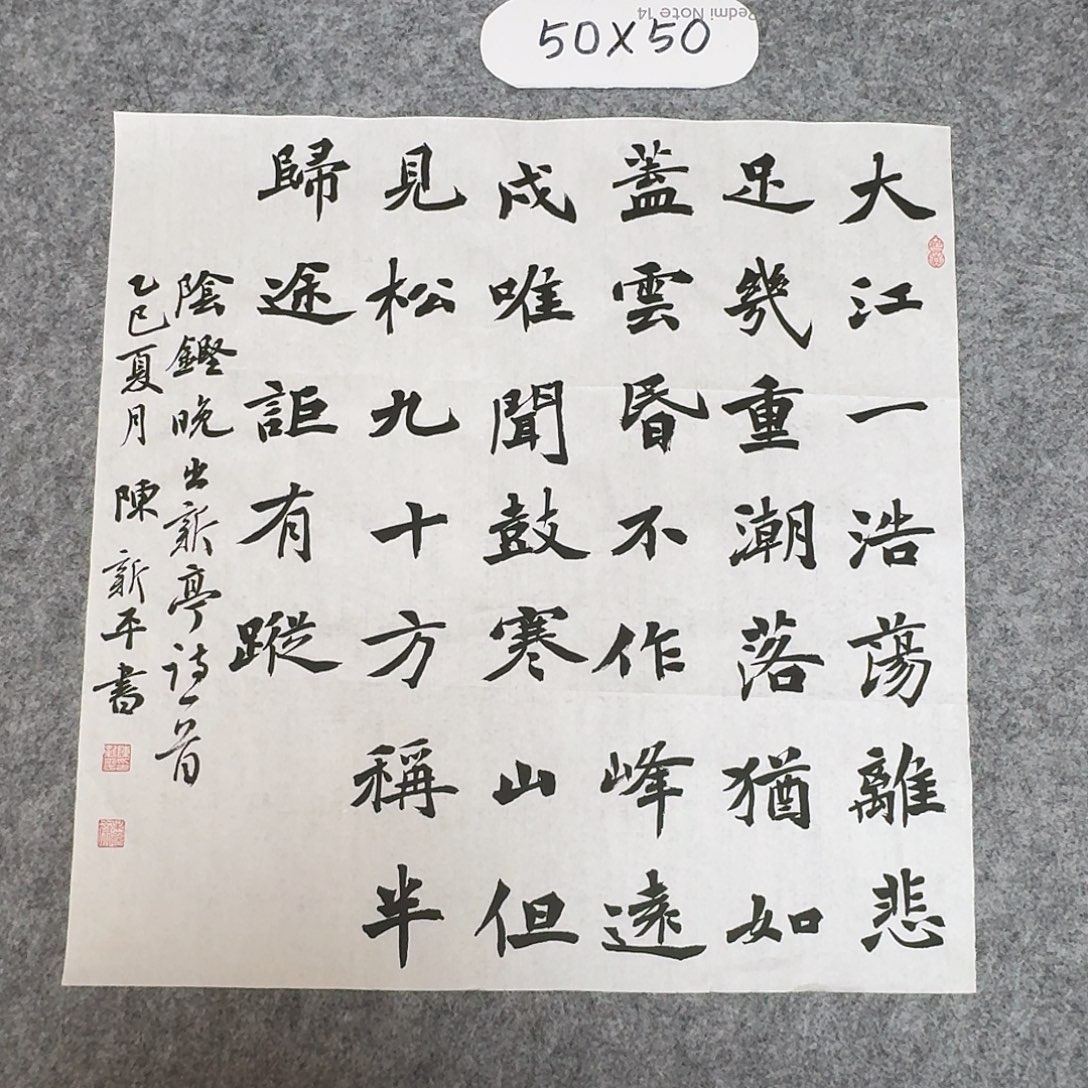 Redmi Note 14
50X50
大江一浩蕩離悲
足幾重潮落猶如
蓋雲昏不作峰遠
戍唯聞鼓寒山但
見松九十方稱半
歸途詎有蹤
陰鏗晚出新亭詩一首
乙巳夏月 陳新平書